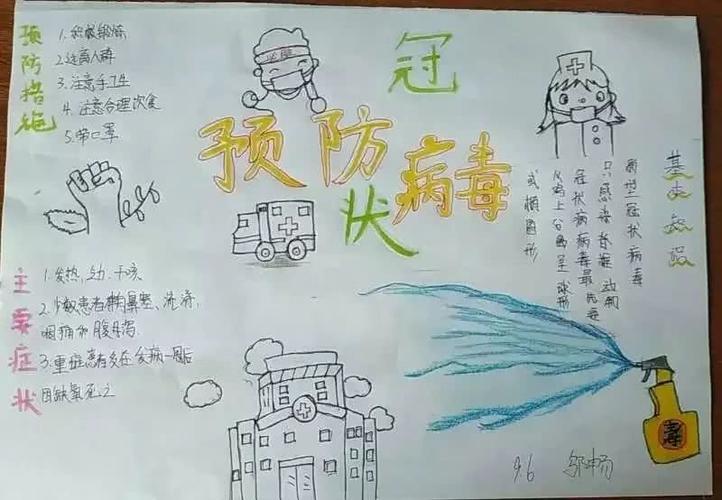 预防措施
1.积极锻炼
2.远离人群
3.注意手卫生
4.注意合理饮食
5.带口罩
必胜
冠
预防病毒
状
基本知识
新型冠状病毒
只感染脊椎动物
冠状病毒最先是
从鸡上分离呈球形
或椭圆形
主要症状
1.发热、乏力、干咳
2.少数患者有鼻塞、流涕、
咽痛和腹泻
3.重症患者多在发病一周后
毒
96